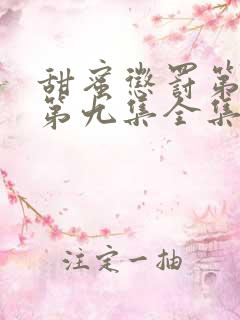 甜蜜惩罚第
第九集全集
注定一抽